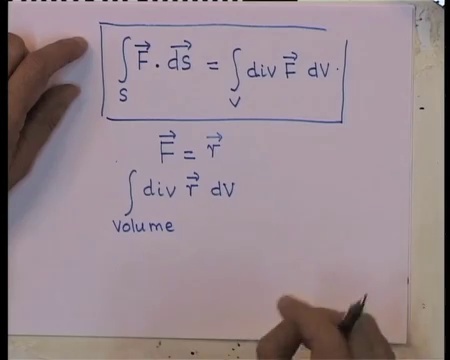 ∫_S F⃗ · d⃗s = ∫_V div F⃗ dV.
F⃗ = r⃗
∫_volume div r⃗ dV